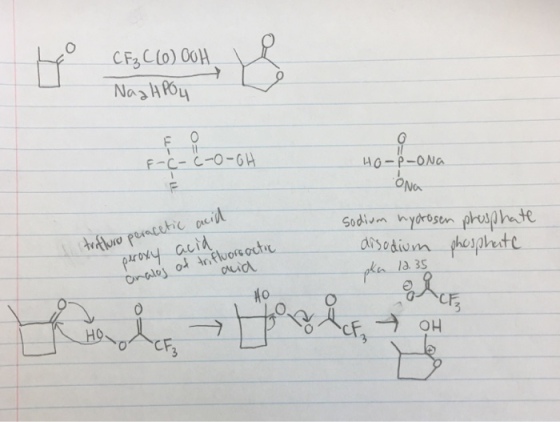 O
CF3C(O)OOH
Na2HPO4
O
O
F O
F-C-C-O-OH
F
O
HO-P-ONa
ONa
trifluro peracetic acid
peroxy acid
analog of trifluoroacetic
acid
sodium hydrogen phosphate
disodium phosphate
pka 12.35
O
HO
O
O
CF3
HO
O
O
O
CF3
O
O
CF3
OH
O